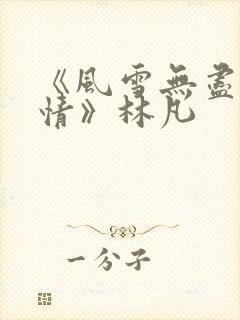 《風雪無盡
情》林凡
一分子